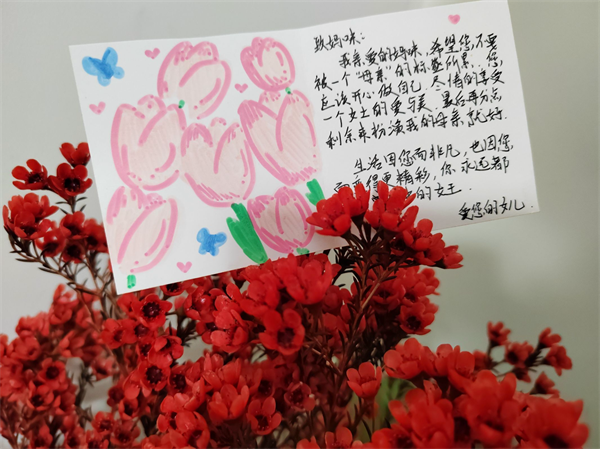 致妈咪:
我亲爱的妈咪，希望您不要
被一个“母亲”的标签所累..您
应该开心做自己.尽情的享受
一个女士的爱与美.最后再分点
剩余来扮演我的母亲.就好.
生活因您而非凡，也因您
而变得更精彩，你永远都
的女王.
爱您的女儿.